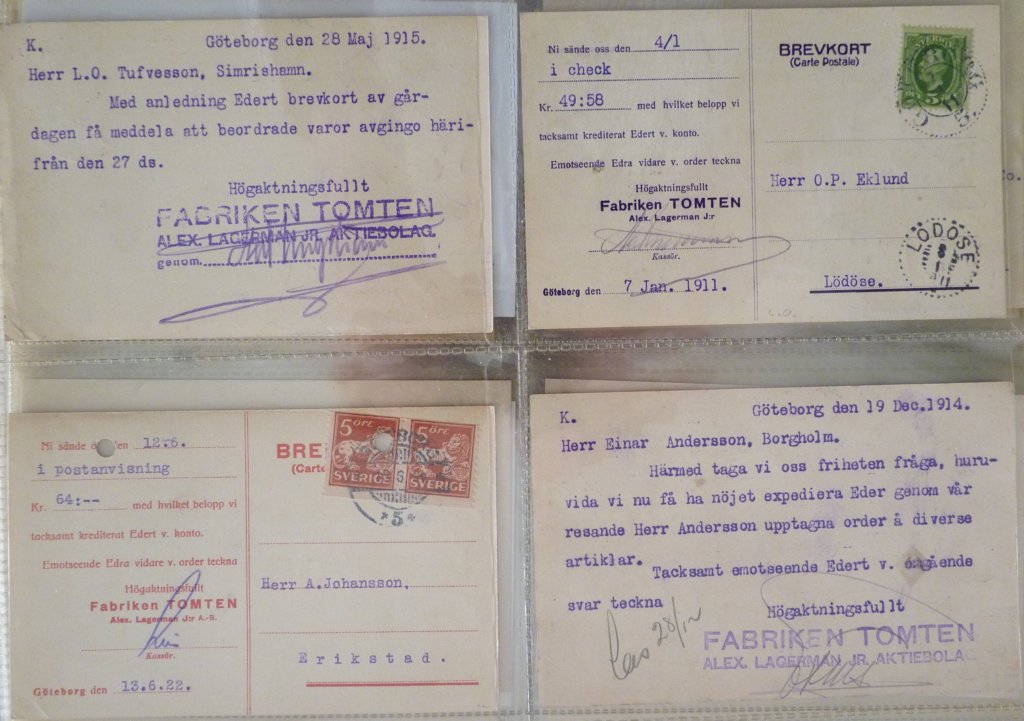 K. Göteborg den 28 Maj 1915.
Herr L.O. Tufvesson, Simrishamn.
Med anledning Edert brevkort av går-
dagen få meddela att beordrade varor avgingo häri-
från den 27 ds.
Högaktningsfullt
FABRIKEN TOMTEN
ALEX. LAGERMAN JR. AKTIEBOLAG.
genom.
Ni sände oss den 4/1
i check
Kr. 49:58 med hvilket belopp vi
tacksamt krediterat Edert v. konto.
Emotseende Edra vidare v. order teckna
Högaktningsfullt
Fabriken TOMTEN
Alex. Lagerman J:r
Kassör.
Göteborg den 7 Jan. 1911.
BREVKORT
(Carte Postale)
SVERIGE
5
Herr O.P. Eklund
LÖDÖSE
8
11
Lödöse.
Ni sände den 12.6.
i postanvisning
Kr. 64:-- med hvilket belopp vi
tacksamt krediterat Edert v. konto.
Emotseende Edra vidare v. order teckna
Högaktningsfullt
Fabriken TOMTEN
Alex. Lagerman J:r A.-B.
Kassör.
Göteborg den 13.6.22.
BRE
(Carte
5 ÖRE 5 ÖRE
SVERIGE SVERIGE
*5*
Herr A.Johansson,
Erikstad.
K. Göteborg den 19 Dec.1914.
Herr Einar Andersson, Borgholm.
Härmed taga vi oss friheten fråga, huru-
vida vi nu få ha nöjet expediera Eder genom vår
resande Herr Andersson upptagna order å diverse
artiklar. Tacksamt emotseende Edert v. omgående
svar teckna
Högaktningsfullt
28/12
FABRIKEN TOMTEN
ALEX. LAGERMAN JR. AKTIEBOLA